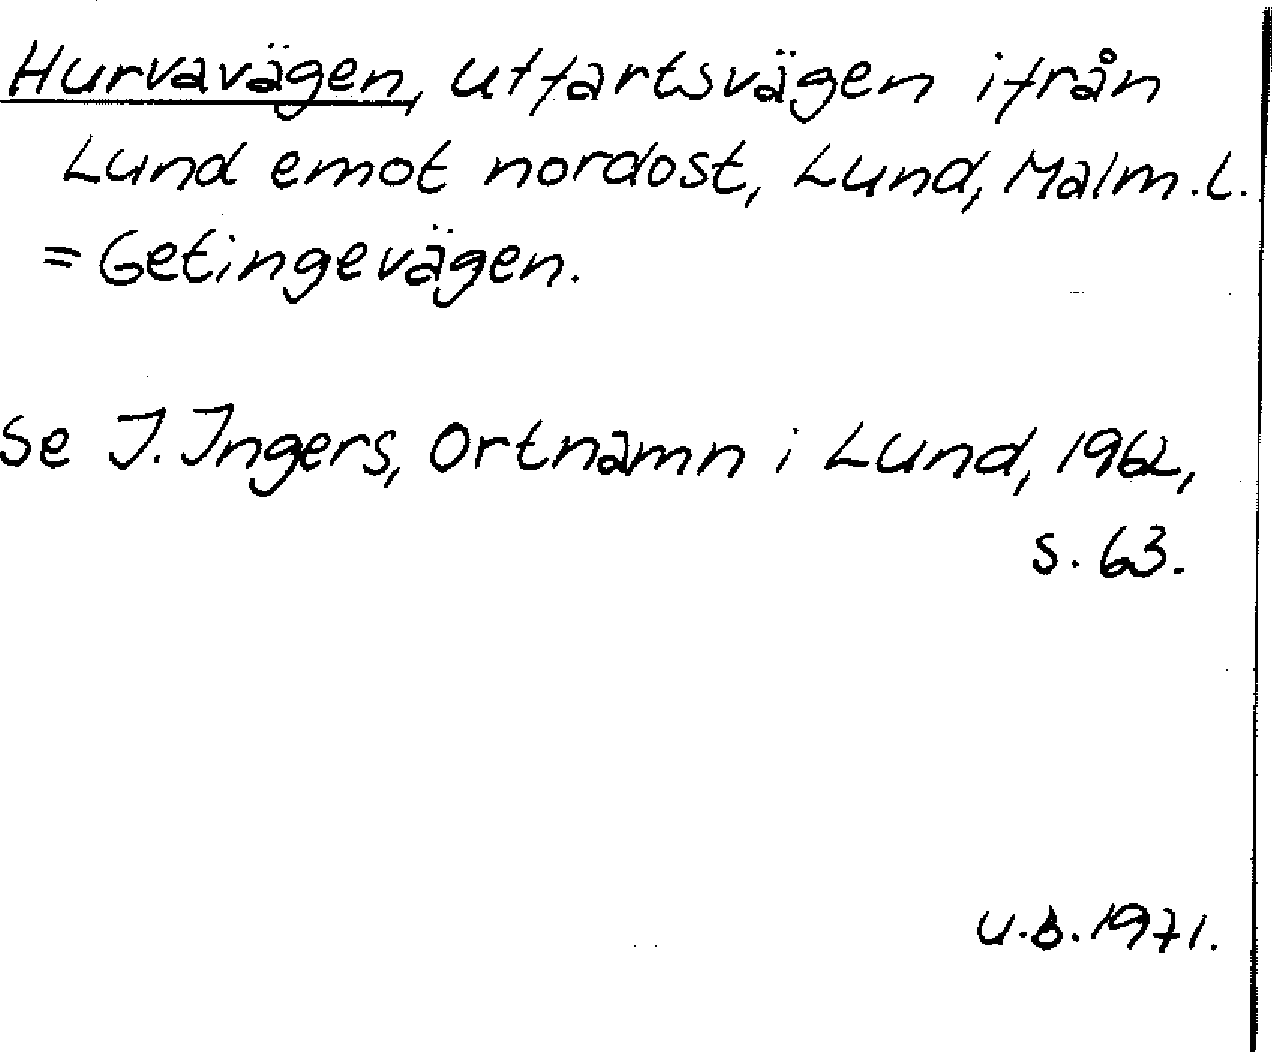 Hurvavägen, utfartsvägen ifrån
Lund emot nordost, Lund, Malm. l.
= Getingevägen.
Se J. Ingers, Ortnamn i Lund, 1962,
s. 63.
U.B. 1971.